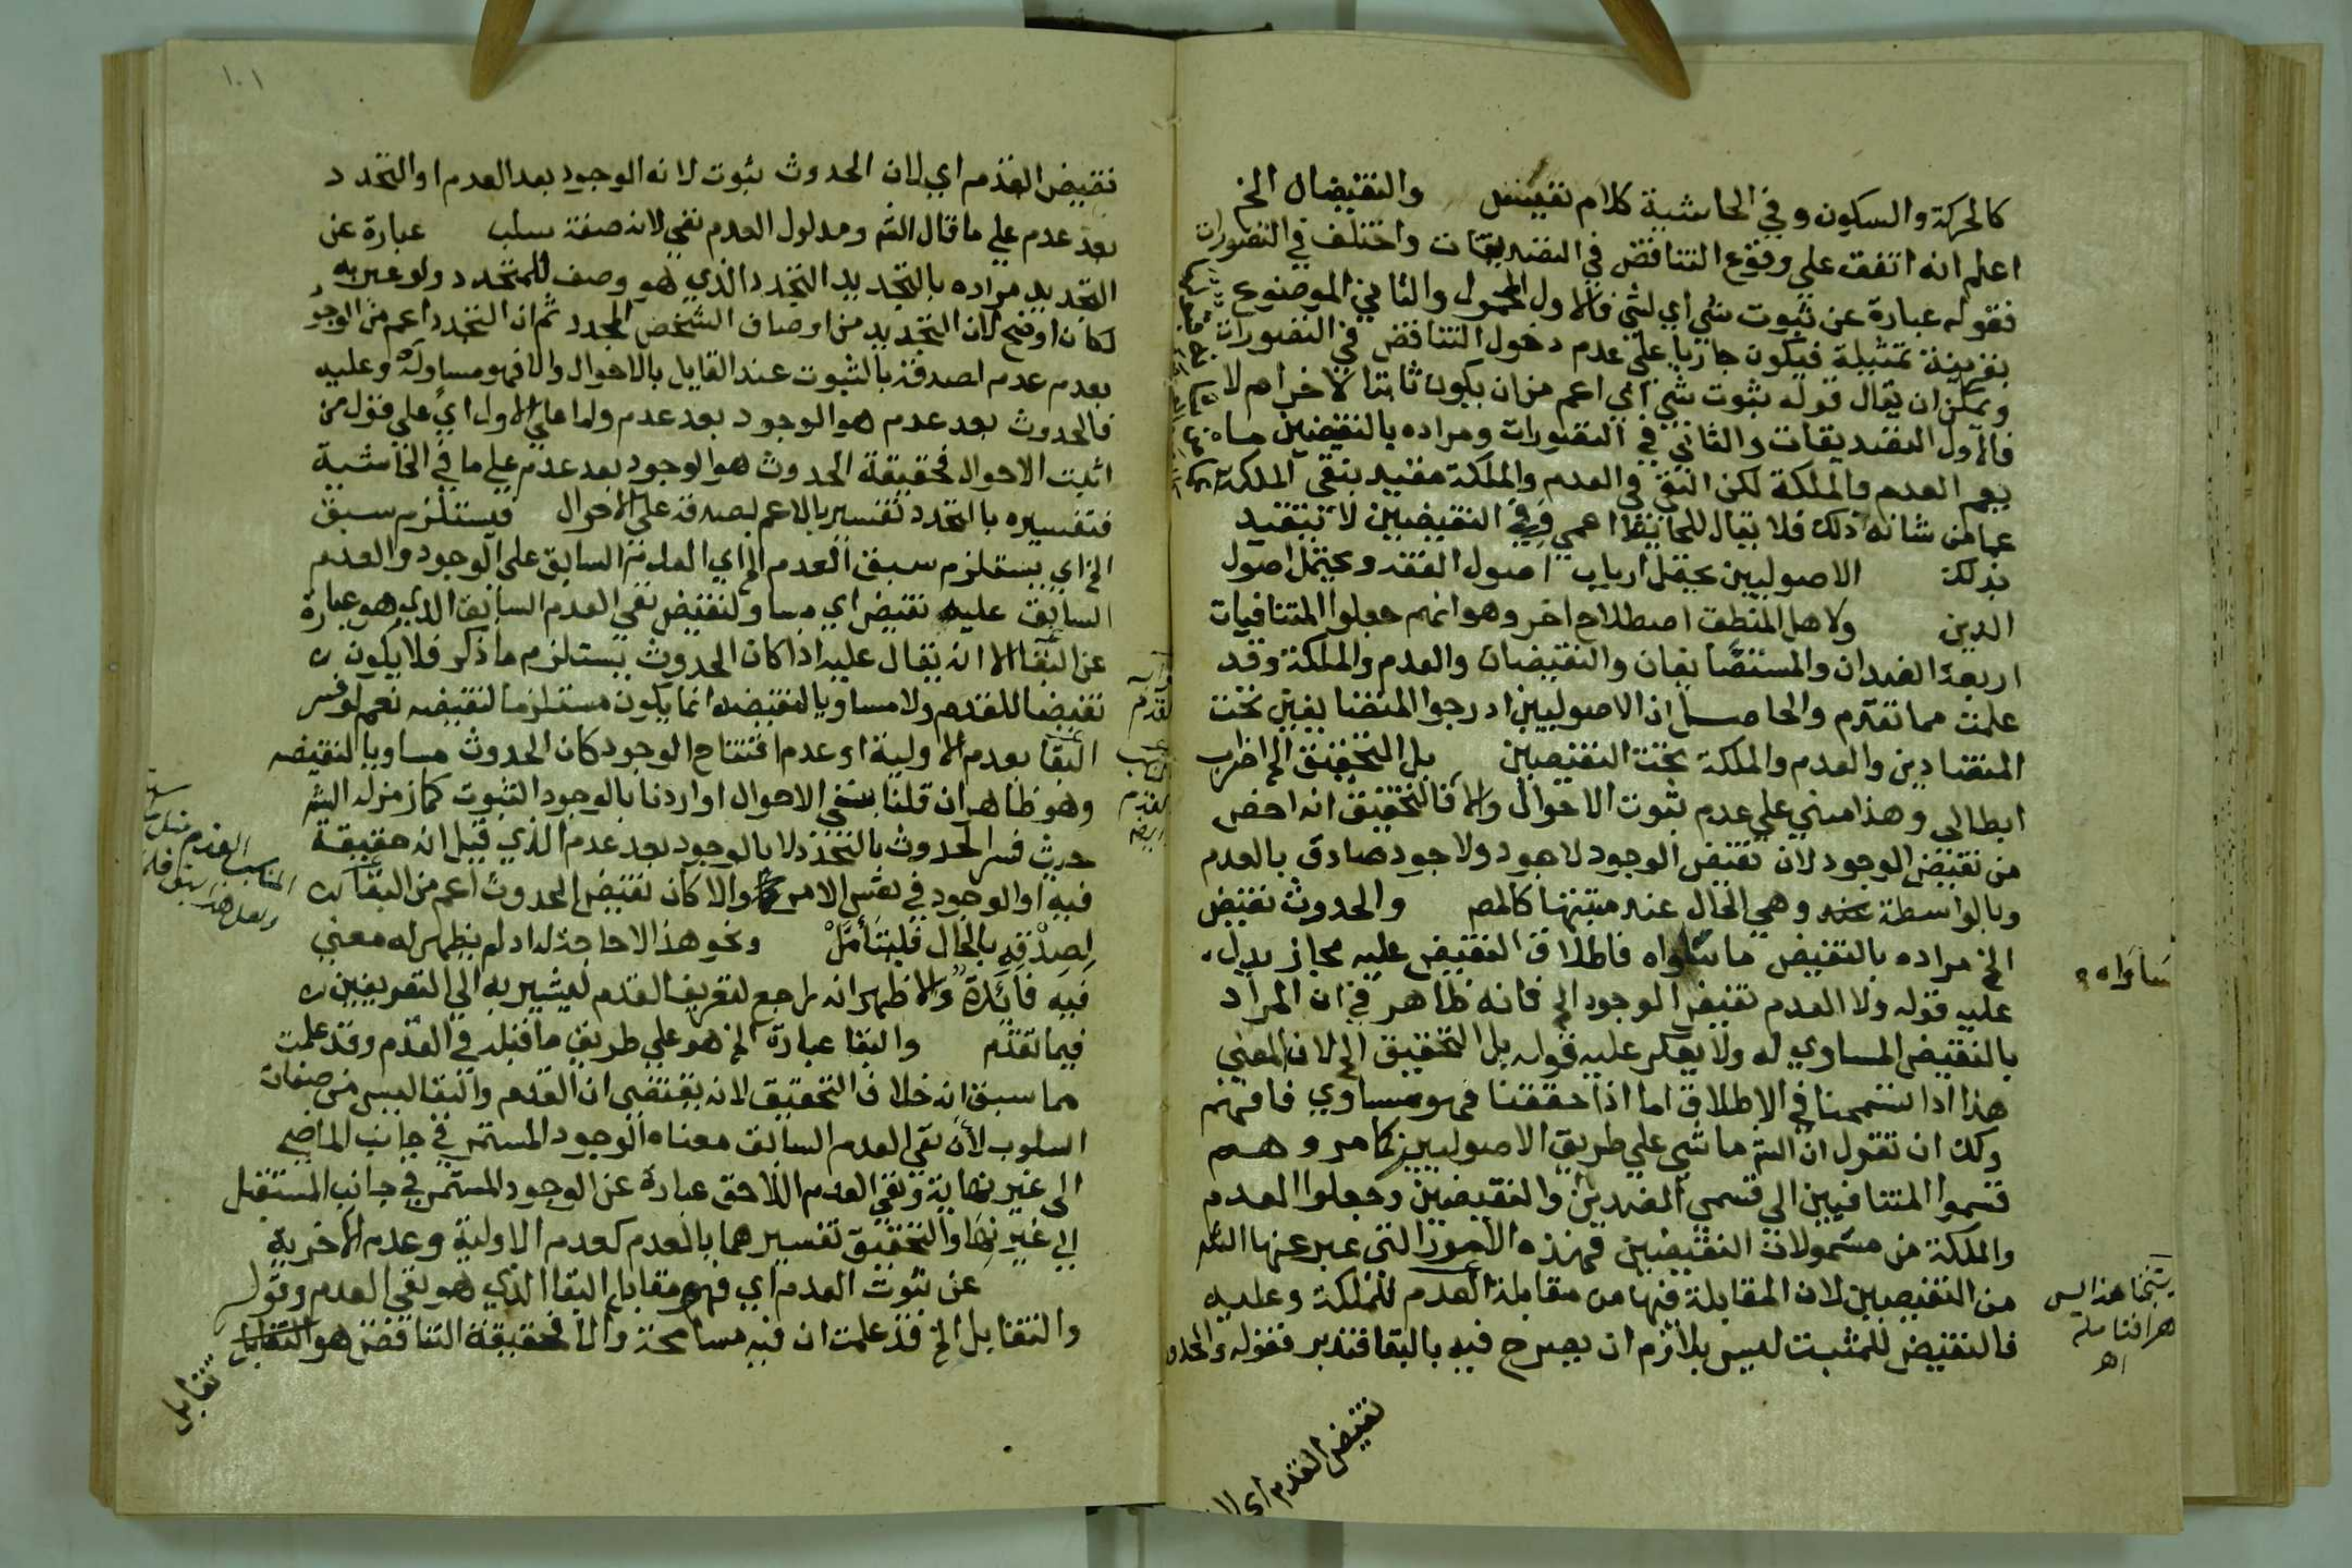 كالحركة والسكون وفي الحاشية كلام نفيس والنقيضان الخ
اعلم انه اتفق على وقوع التناقض في التصديقات واختلف في التصورات
فقوله عبارة عن ثبوت شي اي لشي فالاول المحمول والثاني الموضوع
بقرينة تمثيله فيكون جاريا على عدم دخول التناقض في التصورات
ويمكن ان يقال قوله ثبوت شي اي اعم من ان يكون ثابتا لاخر ام لا
فالاول التصديقات والثاني في التصورات ومراده بالنقيضين ما
يعم العدم والملكة لكن النفي في العدم والملكة مقيد بنفي الملكة
عما من شانه ذلك فلا يقال للحائط اعمي وفي النقيضين لا يتقيد
بذلك الاصوليين يحتمل ارباب اصول الفقه ويحتمل اصول
الدين ولاهل المنطق اصطلاح اخر وهو انهم جعلوا المتنافيات
اربعة الضدان والمتضايفان والنقيضان والعدم والملكة وقد
علمت مما تقدم والحاصل ان الاصوليين ادرجوا المتضايفين تحت
المتضادين والعدم والملكة تحت النقيضين بل التحقيق الخ اضراب
ابطالي وهذا مبني على عدم ثبوت الاحوال والا فالتحقيق انه اخص
من نقيض الوجود لان نقيض الوجود لا وجود ولا وجود صادق بالعدم
وبالواسطة وهي الحال عند مثبتها كالمص والحدوث نقيض
الخ مراده بالنقيض ما ساواه فاطلاق النقيض عليه مجاز يدل
عليه قوله ولا العدم نقيض الوجود الخ فانه ظاهر في ان المراد
بالنقيض المساوي له ولا يعكر عليه قوله بل التحقيق الخ لان المعني
هذا اذا تسمحنا في الاطلاق اما اذا حققنا فهو مساوي فافهم
ولك ان تقول ان الشم ماشي على طريق الاصوليين كما مر وهم
قسموا المتنافيين الى قسمي الضدين والنقيضين وجعلوا العدم
والملكة من مشمولات النقيضين فهذه الامور التي عبر عنها الشم
من النقيضين لان المقابلة فيها من مقابلة العدم للملكة وعليه
فالنقيض للمثبت ليس بلازم ان يصرح فيه بالبقا فتدبر فقوله والحدوث
ساواه
هذا ليس
اهـ
نقيض القدم اي لان
١٠١
نقيض القدم اي لان الحدوث ثبوت لانه الوجود بعد العدم او التجدد
بعد عدم على ما قال الشم ومدلول العدم نفي لانه صفة سلب عبارة عن
التجديد مراده بالتجديد التجدد الذي هو وصف للمتجدد ولو عبر به
لكان اوضح لان التجديد من اوصاف الشخص المجدد ثم ان التجدد اعم من الوجود
بعدم عدم لصدقه بالثبوت عند القايل بالاحوال والا فهو مساو له وعليه
فالحدوث بعد عدم هو الوجود بعد عدم واما على الاول اي على قول من
اثبت الاحوال فحقيقة الحدوث هو الوجود بعد عدم على ما في الحاشية
فتفسيره بالتجدد تفسير بالاعم لصدقه على الاحوال فيستلزم سبق
الخ اي يستلزم سبق العدم الخ اي العدم السابق على الوجود والعدم
السابق عليه نقيض اي مساو لنقيض نفي العدم السابق الذي هو عبارة
عن البقا الا انه يقال عليه اذا كان الحدوث يستلزم ما ذكر فلا يكون
نقيضا للقدم ولا مساويا لنقيضه انما يكون مستلزما لنقيضه نعم لو فسر
البقا بعدم الاولية او عدم افتتاح الوجود كان الحدوث مساويا لنقيضه
وهو ظاهر ان قلنا بنفي الاحوال او اردنا بالوجود الثبوت كما زمزله الشم
حيث فسر الحدوث بالتجدد لا بالوجود بعد عدم الذي قيل انه حقيقة
فيه او الوجود في نفس الامر والا كان نقيض الحدوث اعم من البقا
لصدقه بالحال فليتأمل ونحو هذا لا حاجة له اذ لم يظهر له معني
فيه فائدة والاظهر انه راجع لتعريف القدم ليشير به الى التعريفين
فيما تقدم والبقا عبارة الخ هو على طريق ما قبله في القدم وقد علمت
مما سبق انه خلاف التحقيق لانه يقتضي ان القدم والبقا ليس من صفات
السلوب لان نفي العدم السابق معناه الوجود المستمر في جانب الماضي
الى غير نهاية ونفي العدم اللاحق عبارة عن الوجود المستمر في جانب المستقبل
الى غير نها والتحقيق تفسيرهما بالعدم كعدم الاولية وعدم الاخرية
عن ثبوت العدم اي فهو مقابل البقا الذي هو نفي العدم وقوله
والتقابل الخ قد علمت ان فيه مسامحة والا فحقيقة التناقض هو التقابل
تقابل
القدم
المناسب القدم
ولعل هذا سبق قلم